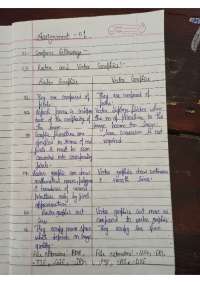 Assignment - 01
Q1. Compare following :-
(i) Raster and Vector Graphics :-
Raster Graphics
Vector Graphics
They are composed of
pixels.
They are composed of
paths.
Refresh process is independent
of the complexity of
the image
Vector displays flicker when
the no. of primitives in the
image become too large
Graphic primitives are
specified in terms of end
points & must be scan
converted into corresponding
pixels.
Scan conversion is not
required.
Raster graphics can draw
mathematical curves, polygons
& boundaries of curved
primitives only by pixel
approximation.
Vector graphics draw continuous
& smooth lines.
Raster graphics cost
less.
Vector graphics cost more as
compared to raster graphics.
They occupy more space
which depends on image
quality.
They occupy less space
File extensions:
File extensions: